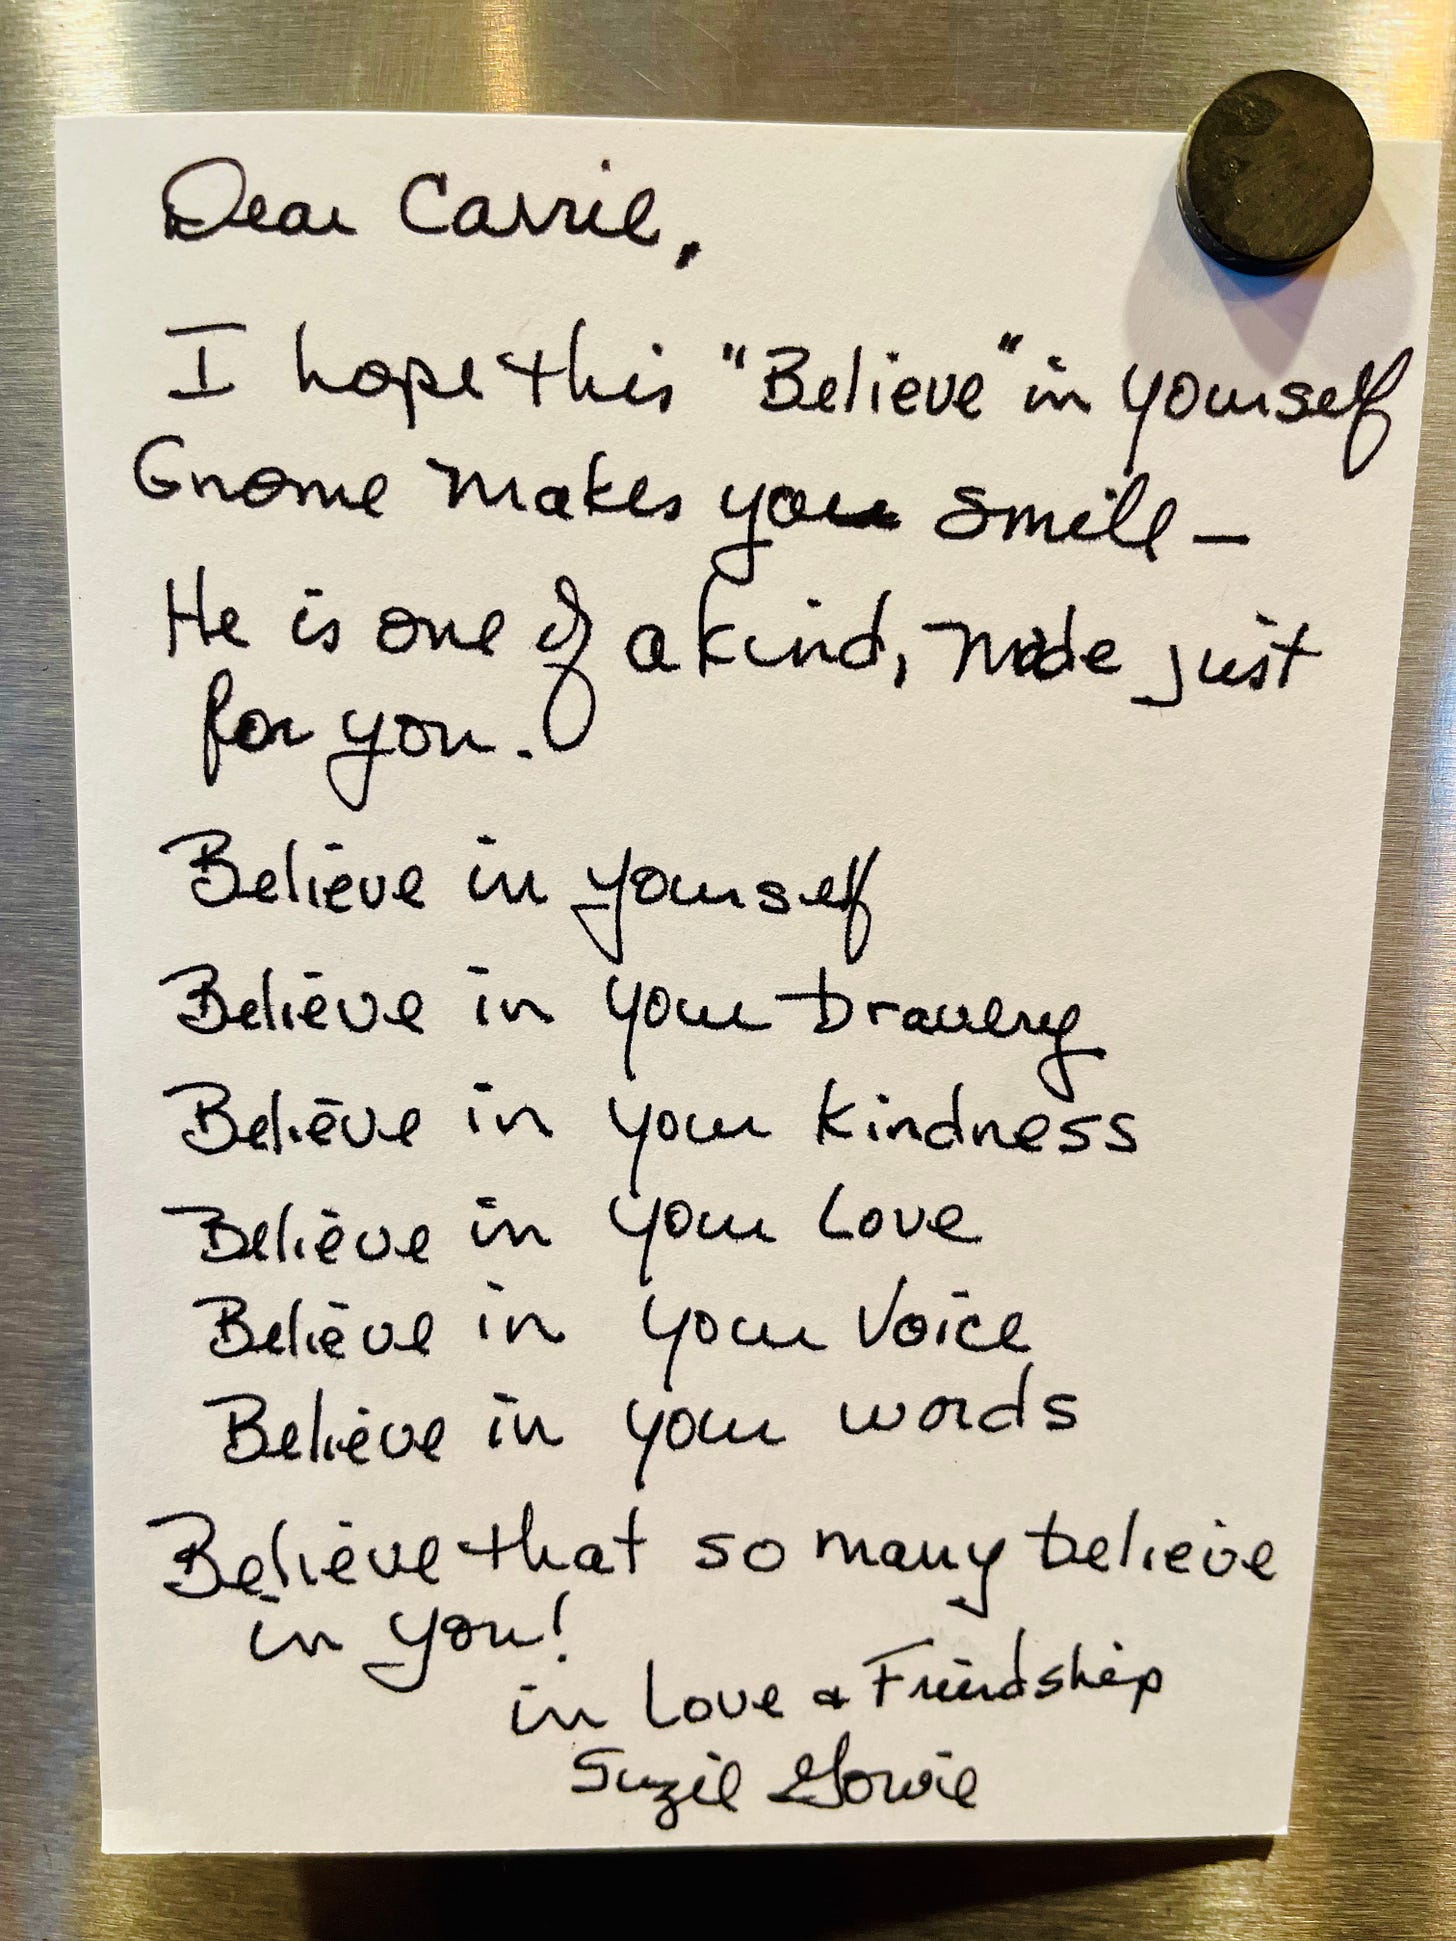 Dear Carrie,
I hope this "Believe" in yourself
Gnome makes you smile —
He is one of a kind, made just
for you.
Believe in yourself
Believe in your bravery
Believe in your kindness
Believe in your Love
Believe in your Voice
Believe in your words
Believe that so many believe
in you!
in Love & Friendship
Suzie